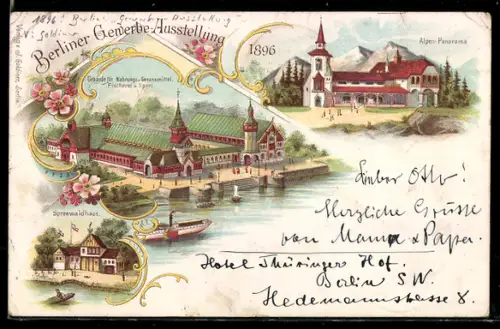 1896! Berliner Gewerbe Ausstellung
Berliner Gewerbe-Ausstellung
1896
Alpen-Panorama
Gebäude für Nahrungs- u. Genussmittel,
Fischerei u. Sport
Spreewaldhaus.
Lieber Otto!
Herzliche Grüsse
von Mama & Papa.
Hotel Thüringer Hof.
Berlin S.W.
Hedemannstrasse 8.